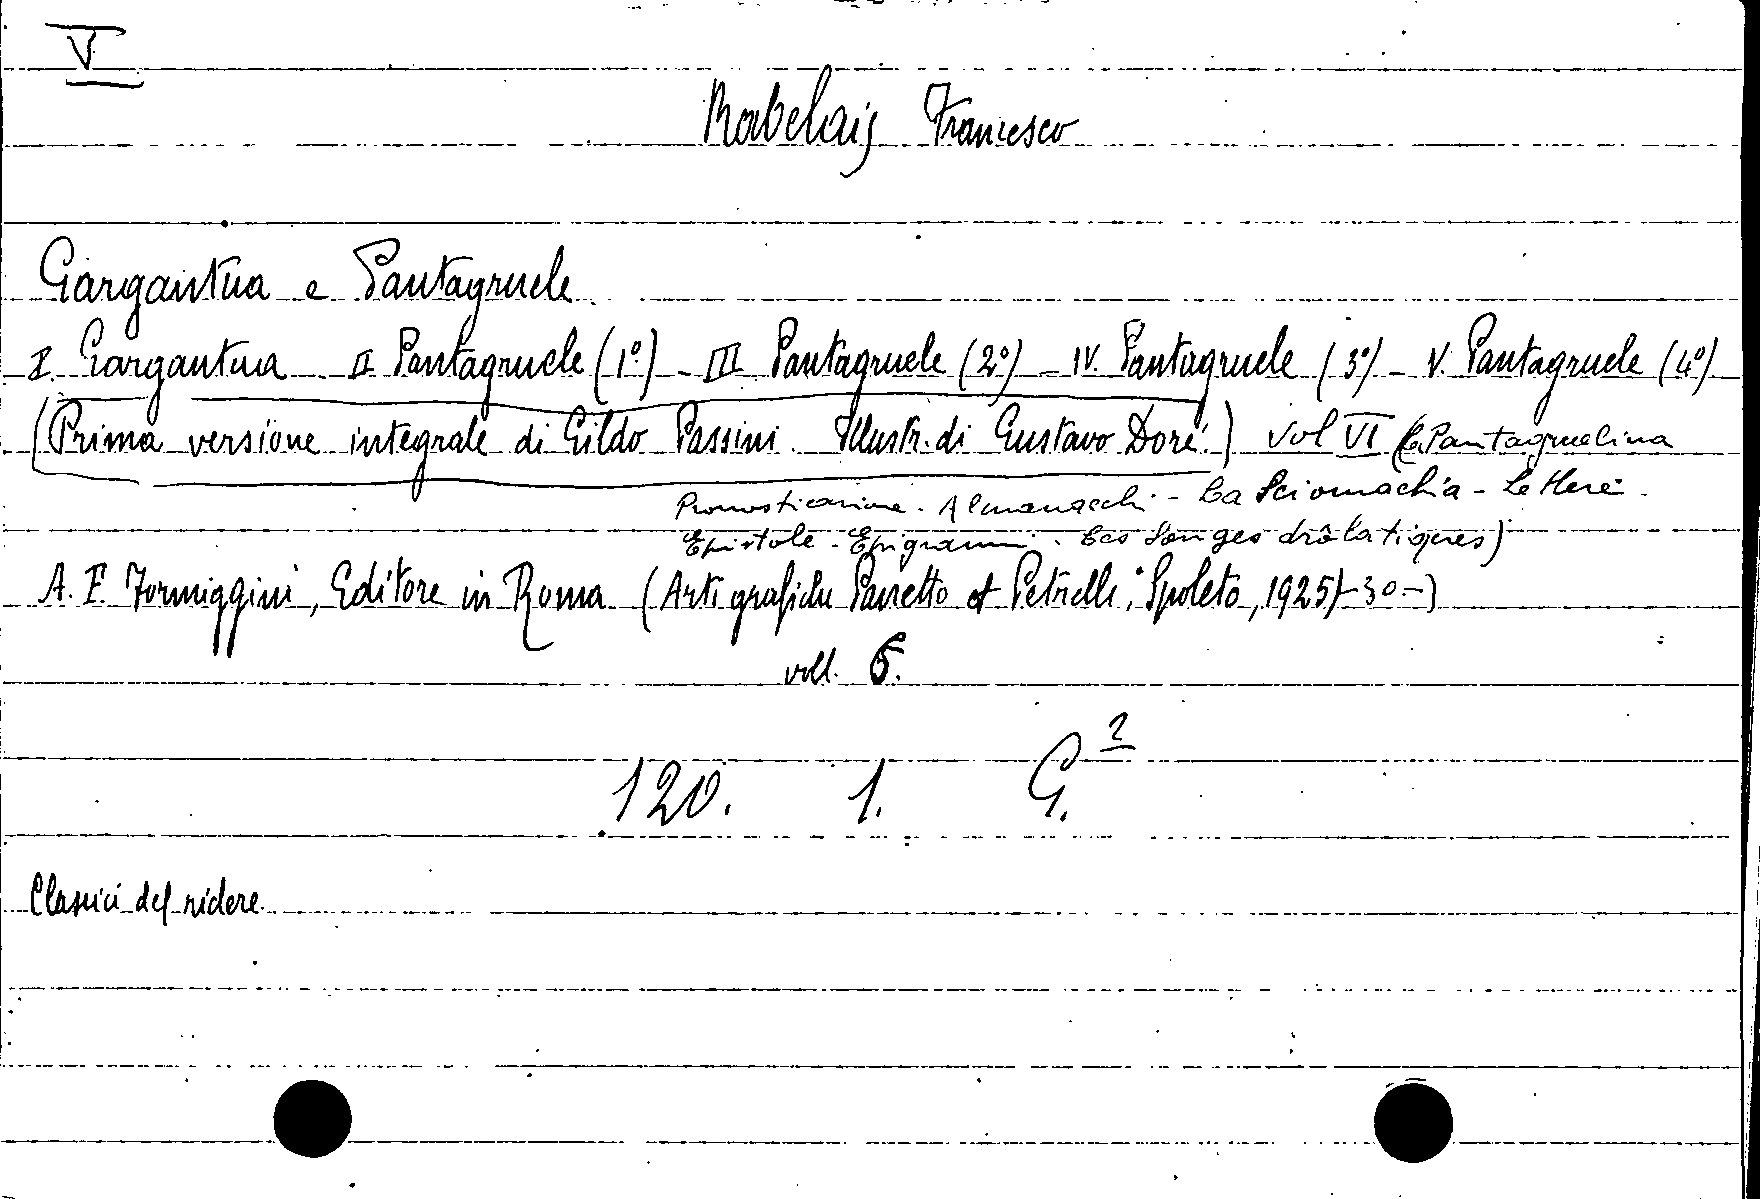 V
Rabelais Francesco
Gargantua e Pantagruele
I. Gargantua II Pantagruele (1º) - III Pantagruele (2º) - IV. Pantagruele (3º) - V. Pantagruele (4º)
(Prima versione integrale di Gildo Passini. Illustr. di Gustavo Doré.) Vol VI (La Pantagruelina
Pronosticazione - Almanacchi - La Sciomachia - Lettere -
Epistole - Epigrammi - Les Songes drôlatiques)
A. F. Formiggini, Editore in Roma (Arti grafiche Panetto et Petrelli, Spoleto, 1925/-30-)
voll. 6.
120. 1. G.²
Classici del ridere